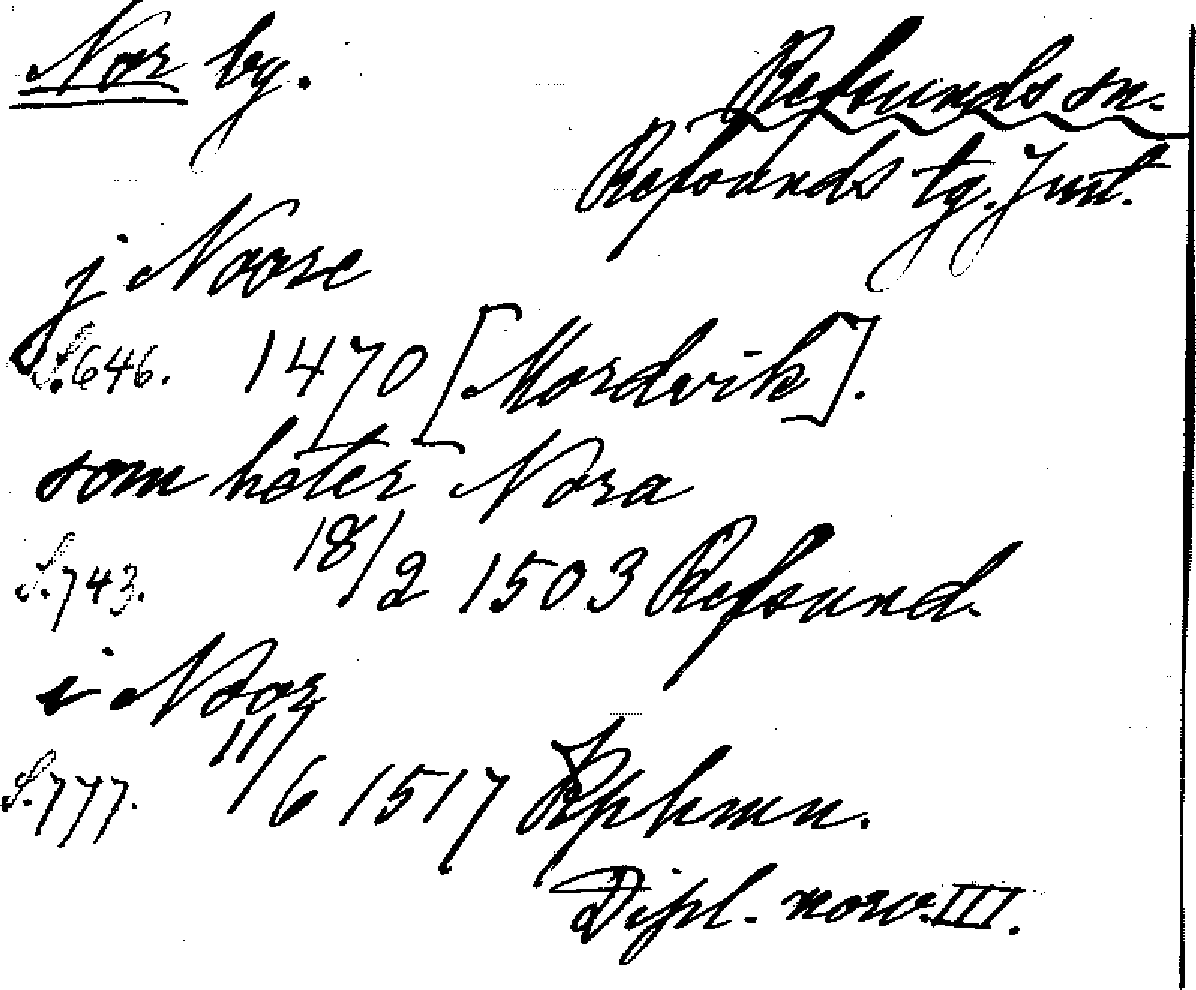 Nor by.
Refsunds sn.
Refsunds tg. Jmt.
j Noore
S. 646. 1470 [Mordvik].
som heter Nora
S. 743. 18/2 1503 Refsund.
i Noor
S. 777. 11/6 1517 Kphmn.
Dipl. norv. III.